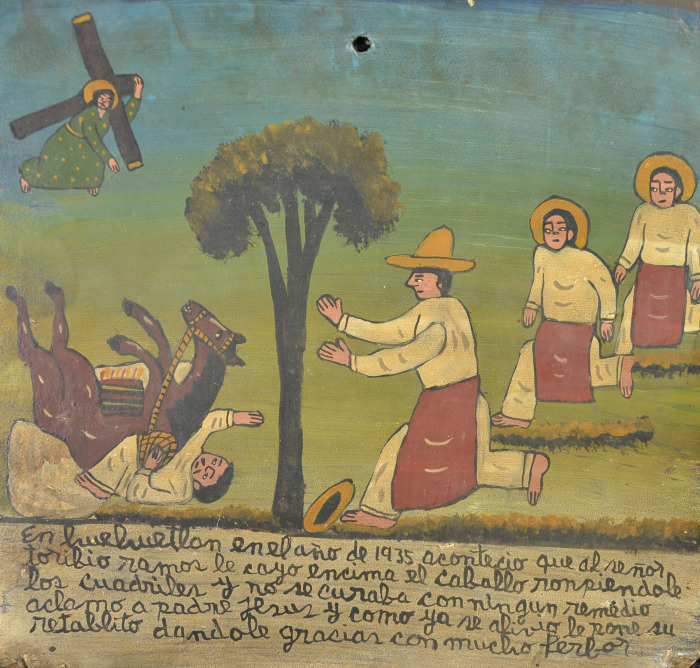 En huehuetlan en el año de 1935 acontecio que al señor
toribio ramos le cayo encima el caballo ronpiendole
los cuadriles y no se curaba con ningun remedio
aclamo a padre Jesus y como ya se alivio le pone su
retablito dandole gracias con mucho ferbor.